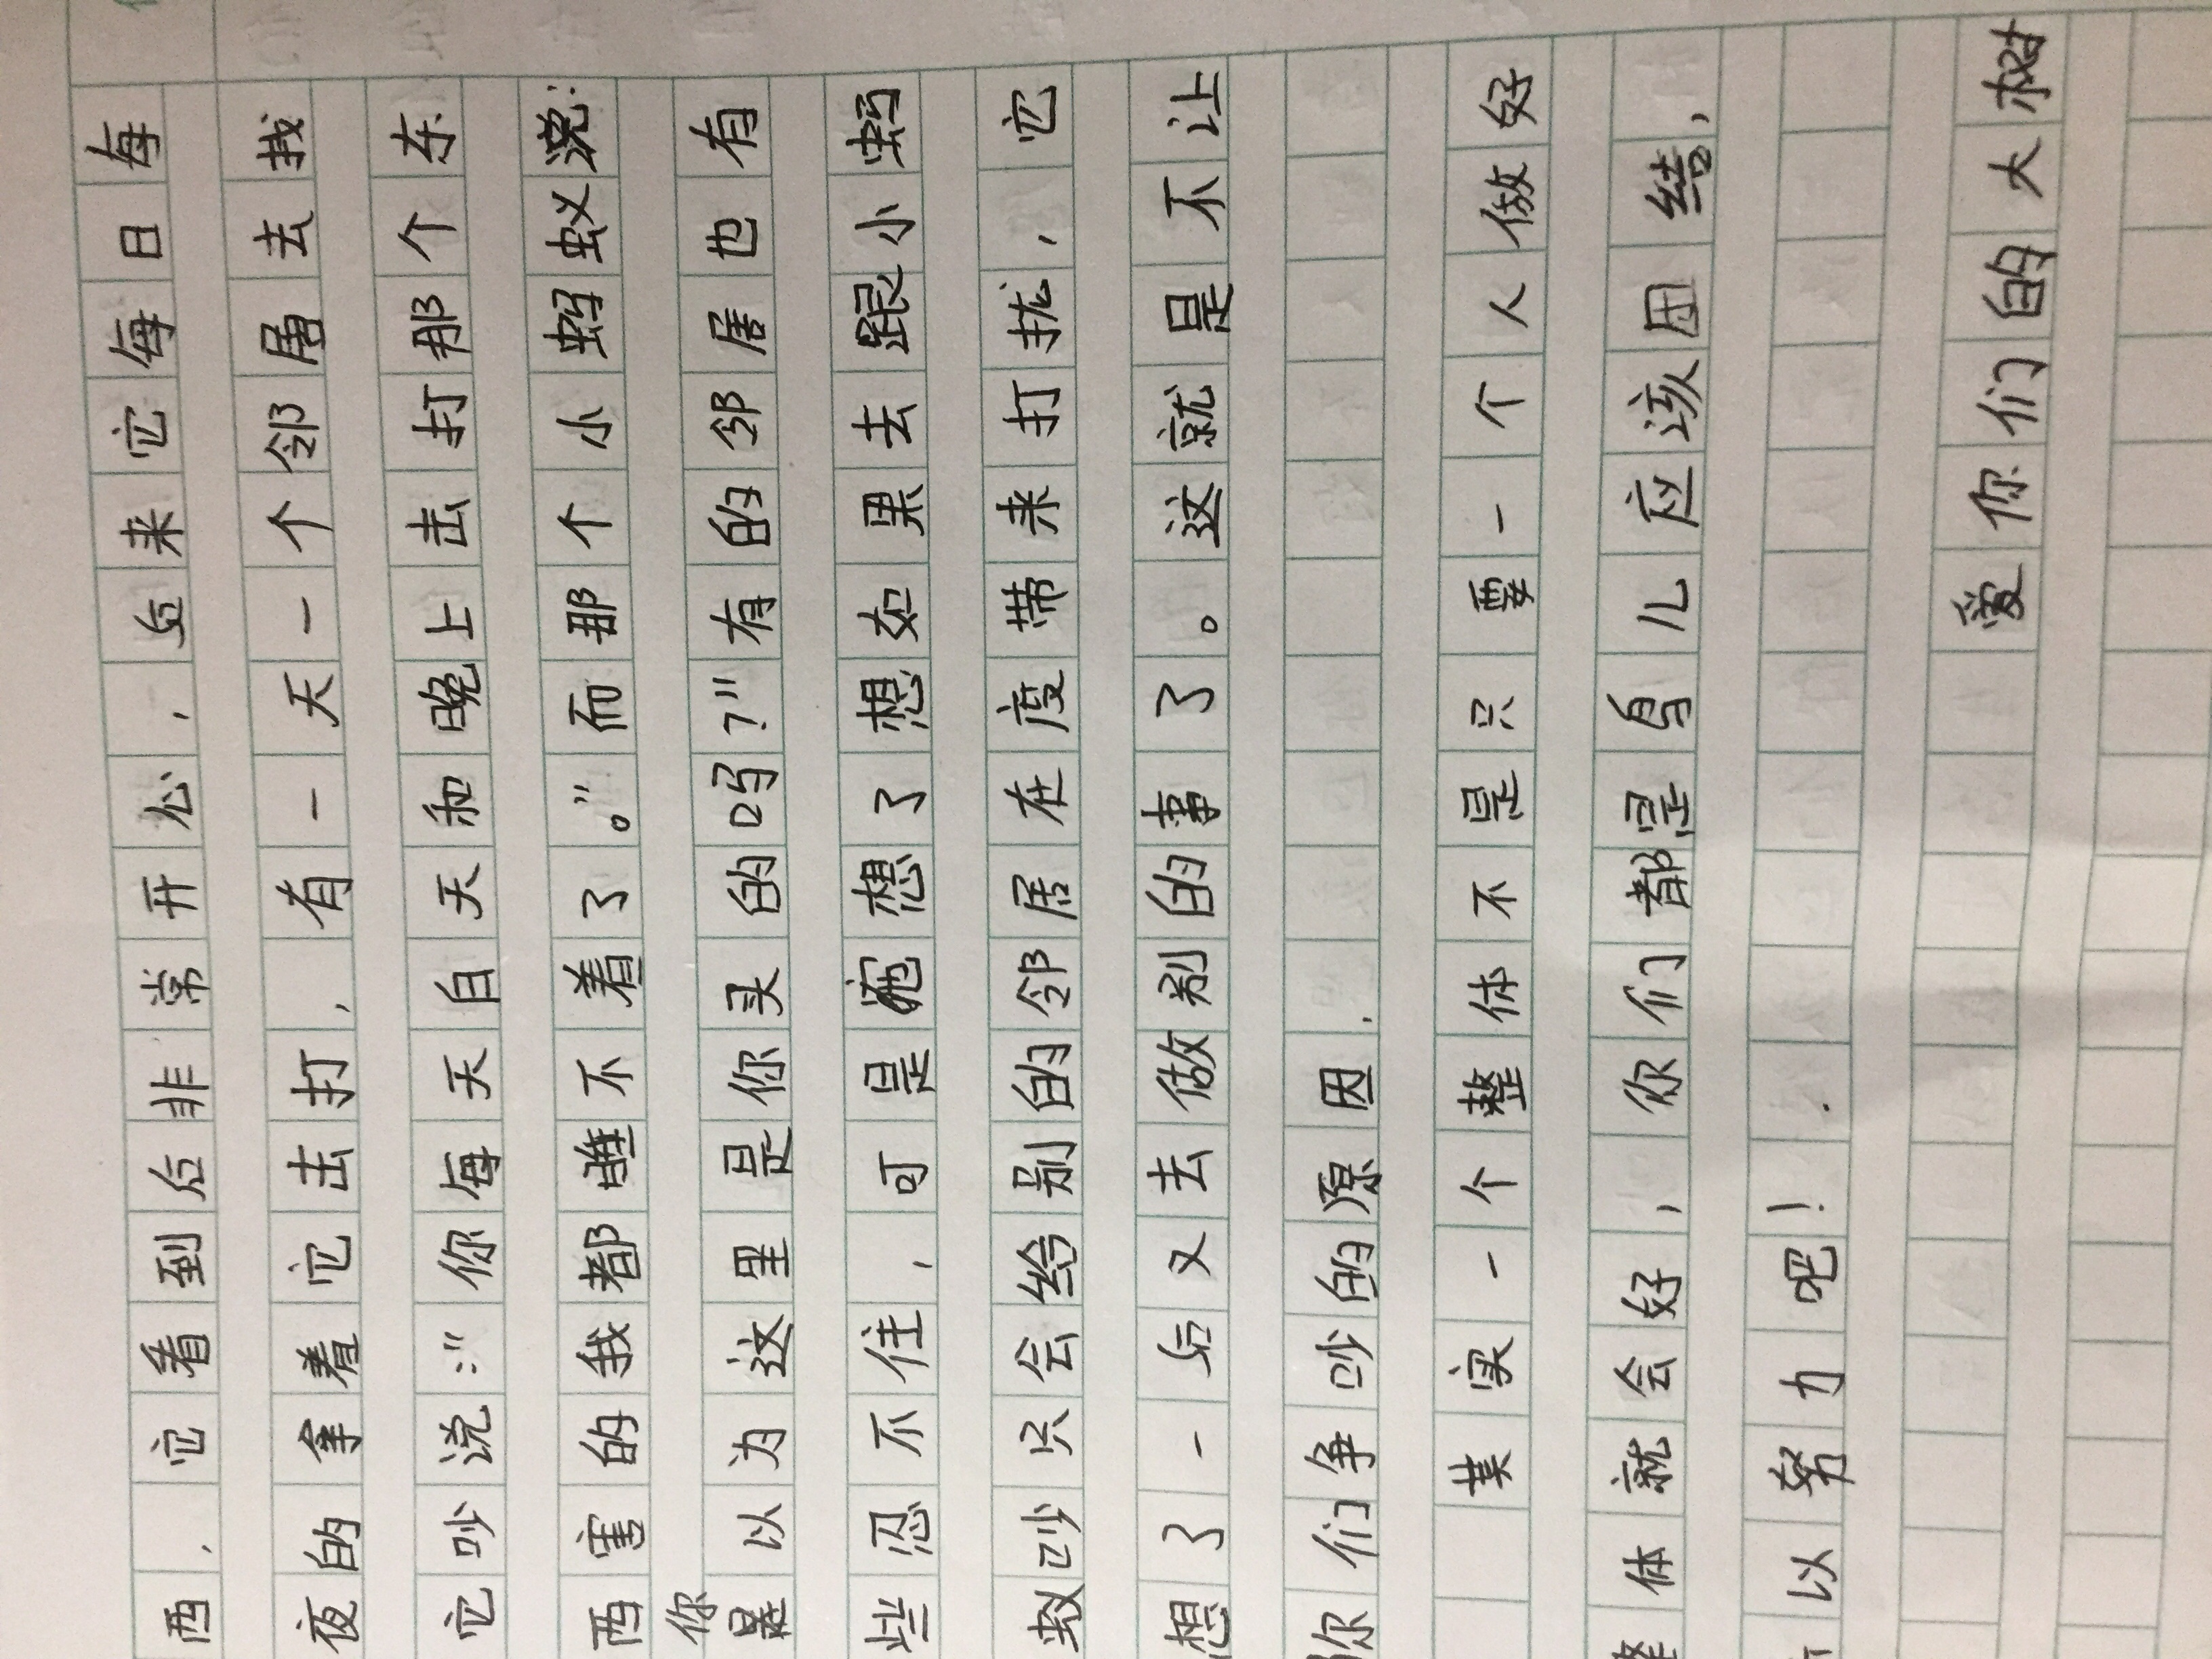 西,它看到后非常开心,后来它每日每
夜的拿着它击打,有一天一个邻居去找
它吵说:"你每天白天和晚上击打那个东
西害的我都睡不着了。"而那个小蚂蚁说:
你以为这里是你买的吗?"有的邻居也有
些忍不住,可是它想了想如果去跟小蚂
蚁吵只会给别的邻居在度带来打扰,它
想了一后又去做别的事了。这就是不让
你们争吵的原因.
其实一个整体不是只要一个人做好
整体就会好,你们都是鸟儿应该团结,
以努力吧!
爱你们的大树